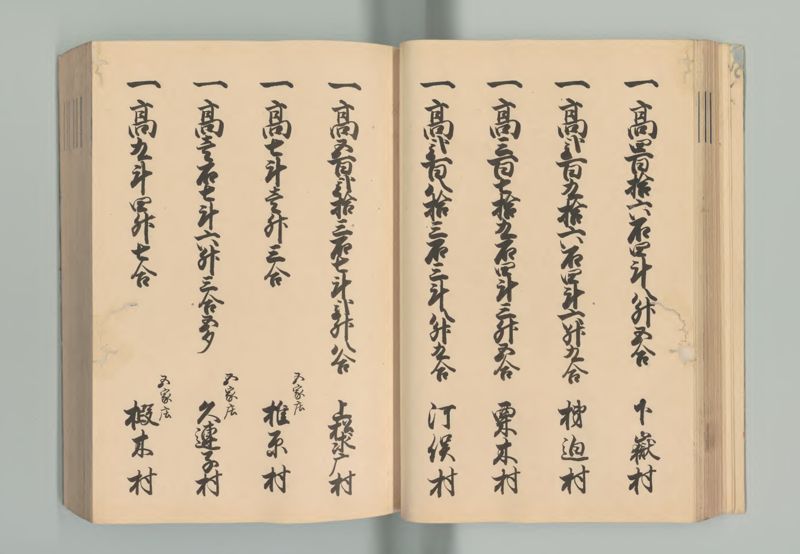 一高四百拾六石四斗八升五合 下嶽村
一高弐百九拾六石四斗六升九合 椎迫村
一高三百七拾九石四斗三升五合 栗木村
一高弐百八拾三石三斗八升九合 河俣村
一高五百弐拾三石七斗弐升八合 上松求麻村
一高七斗壱升三合 五家庄 椎原村
一高壱石七斗六升三合五夕 五家庄 久連子村
一高九斗四升七合 五家庄 椴木村